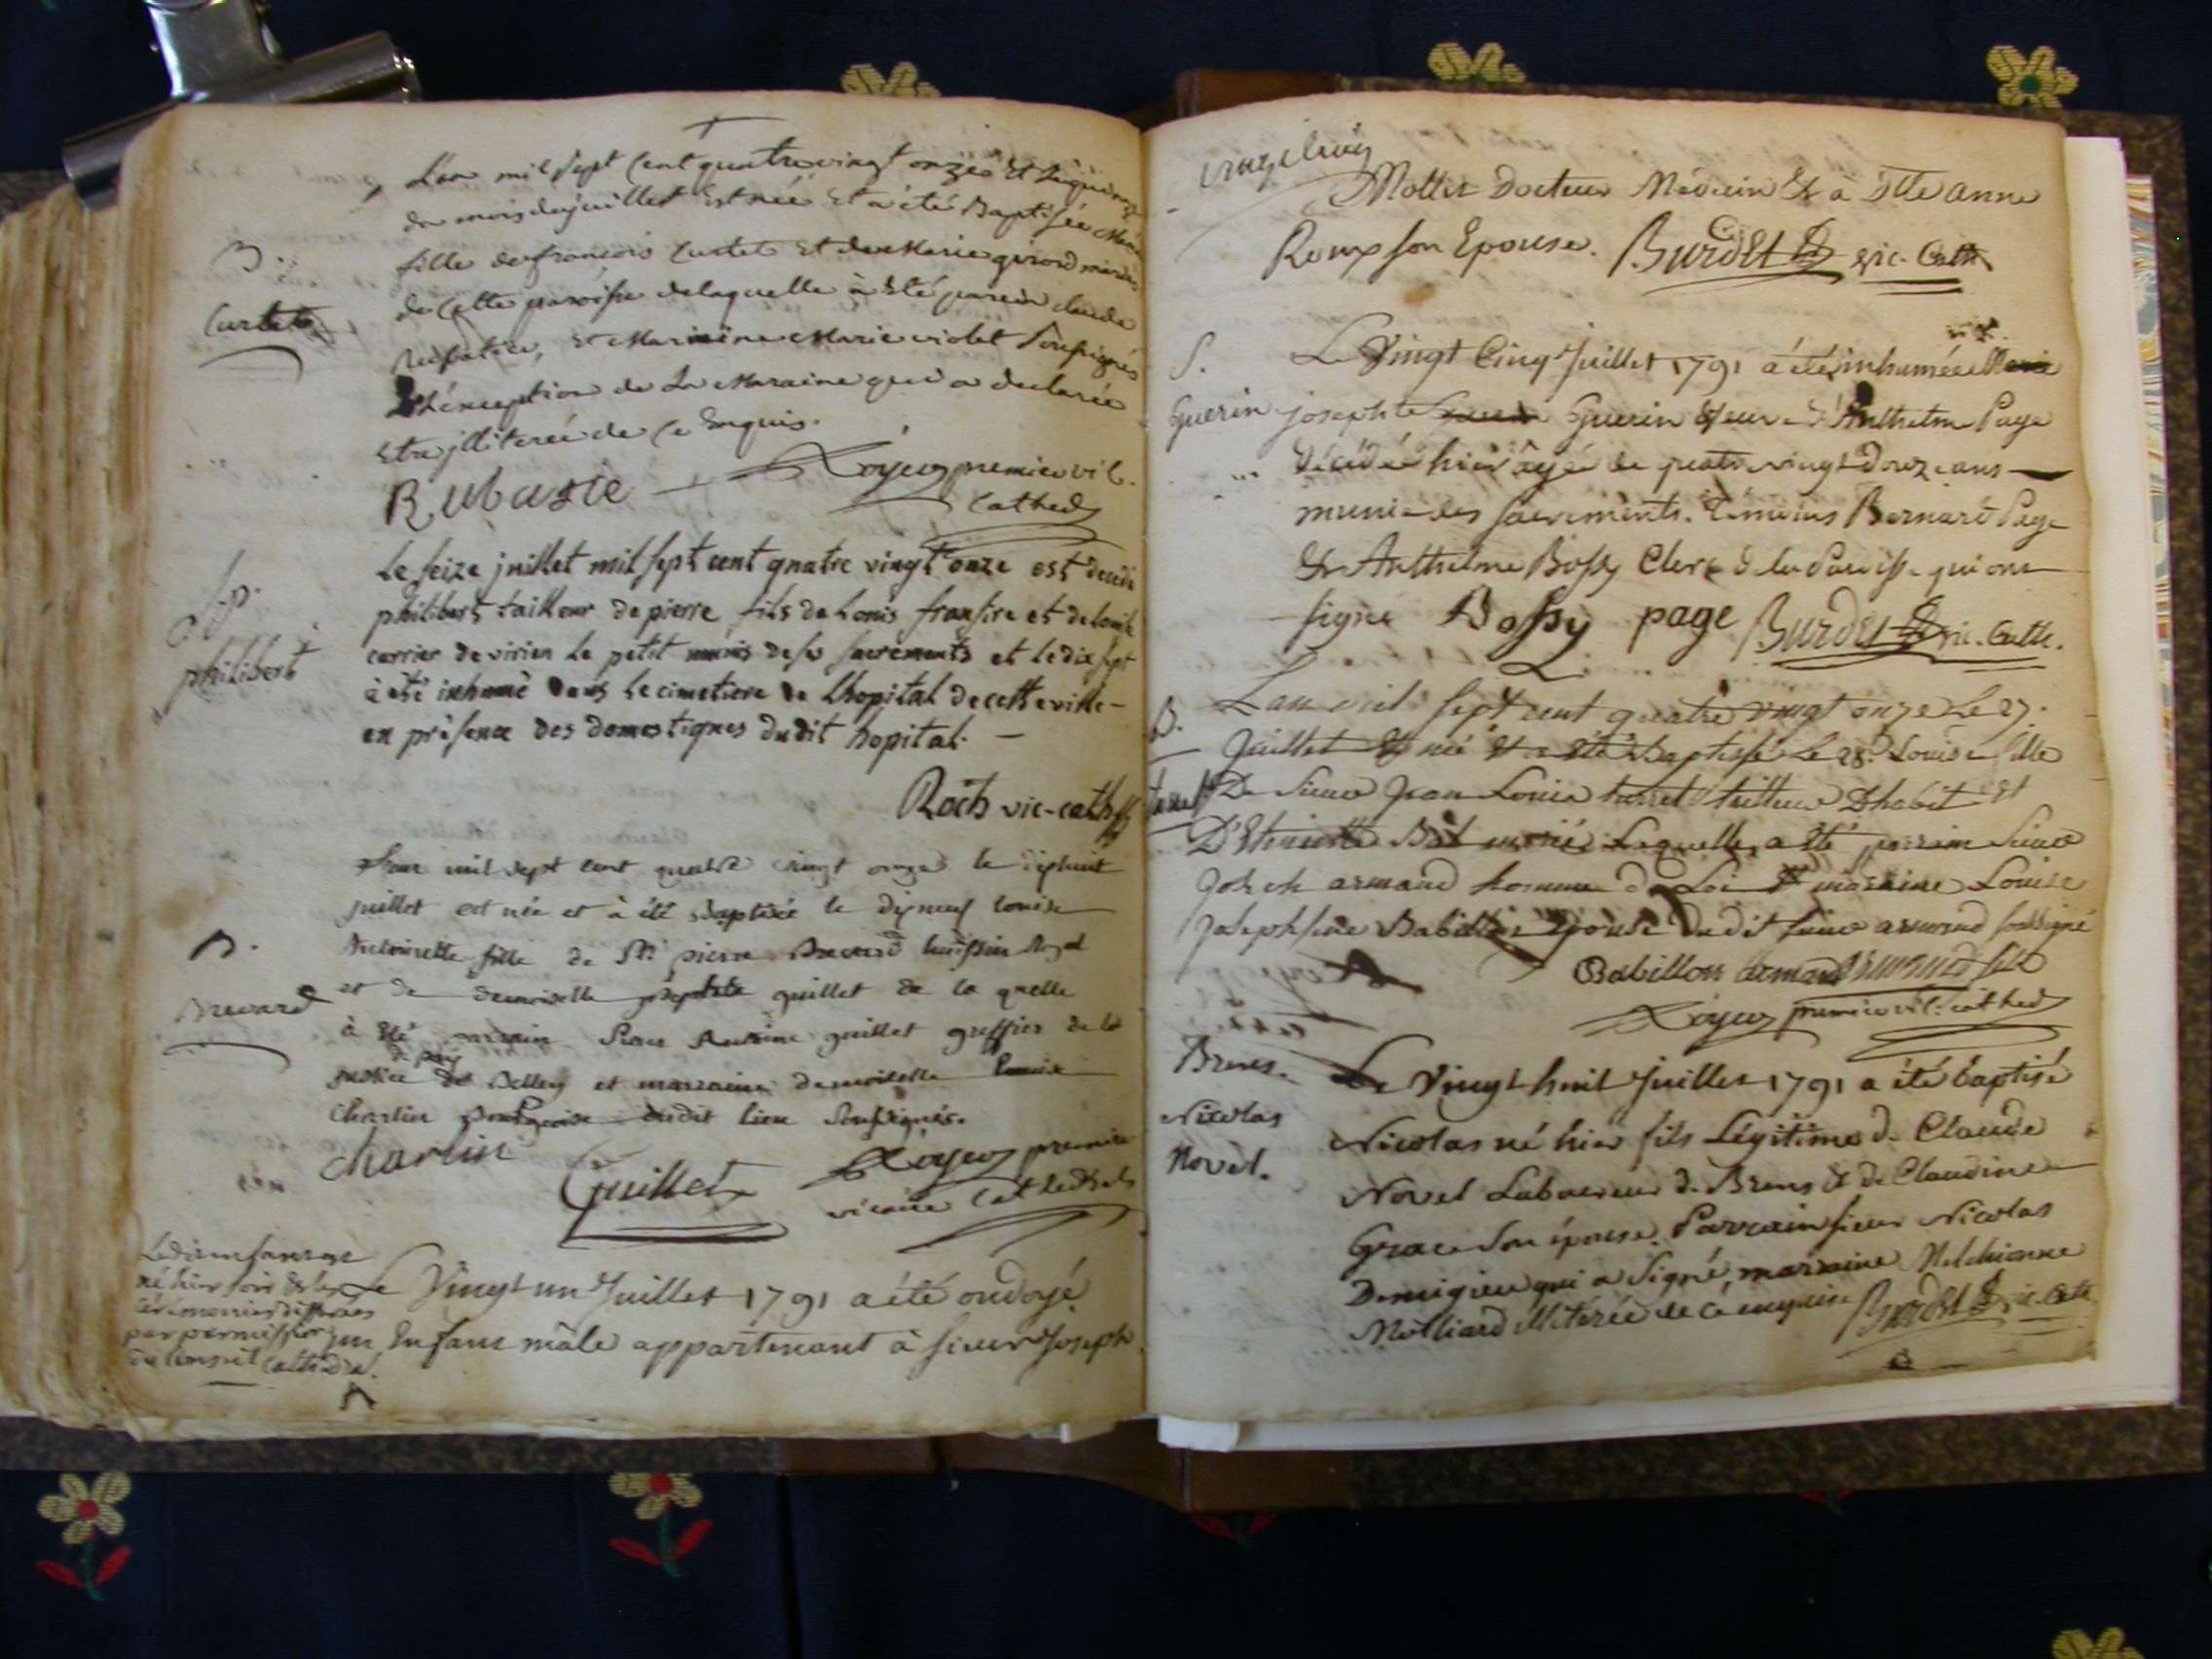 L'an mil sept cent quatre vingt onze et
du mois de juillet est née et a été Baptisée Marie
fille de francois Curtet et de Marie girord mariés
B.
de cette paroisse de laquelle à été parein claude
Curtet
Rubatie, et Mareine Marie violet soussignés
à l'exception de La Maraine qui a declarée
etre jlliterée de ce Enquis.
Rubatie Royer premier vic.
Cathed
Le seize juillet mil sept cent quatre vingt onze est decedé
philibert tailleur de pierre fils de Louis fransire et de Louise
carrier de virieu Le petit munis de ses sacrements et le dix sept
philibert
à été inhumé dans Le cimetiere de Lhopital de cette ville
en présence des domestiques dudit hopital.
Roch vic-cath
L'an mil sept cent quatre vingt onze le diphuit
juillet est née et à été Baptisée le dyneuf Louise
B.
Antoinette fille de Sr. pierre Brevard huissier Royal
Brevard
et de demoiselle josephte guillet de la quelle
à été parrain sieur Antoine guillet greffier de la
de paix
justice de Belley et marraine demoiselle Louise
Charlin Bourgeoise dudit lieu soussignés.
charlin Guillet Royer premier
vicaire Cathedral
Ledit enfant est
né hier soir & les
cérémonies differées
par permission
Cathédral.
Le Vingt un Juillet 1791 a été ondoyé
un Enfant mâle appartenant à sieur Joseph
Mollet Docteur Médecin & a Dlle Anne
Roux son Epouse. Burdet vic. Cath.
S.
Le Vingt Cinq Juillet 1791 a été inhumée Marie
Guerin
josephte Guerin Veuve d'Anthelme Page
décédée hier âgée de quatre vingt douze ans
munie des sacrements. Témoins Bernard Page
& Anthelme Bossy Clerc de la Paroisse qui ont
signé Bossy page Burdet vic. Cath.
L'an mil sept cent quatre vingt onze Le 27.
B.
Juillet est née et a été Baptisée Le 28. Louise fille
De sieur Jean Louis turret tailleur D'habit et
D'Etiennette Bal mariés Laquelle a été parrain sieur
Joseph armand homme de Loi & marraine Louise
Josephine Babillon épouse dudit sieur armand soussigné
Babillon armand
Royer premier vic. cathed
Brens.
Le Vingt huit Juillet 1791 a été baptisé
Nicolas
Nicolas né hier fils Légitime de Claude
Novel.
Novel Laboureur de Brens & de Claudine
Grace son épouse. Parrain sieur Nicolas
Demigieu qui a signé, marraine Melchionne
Molliard illitérée de ce enquise Burdet vic. Cath.